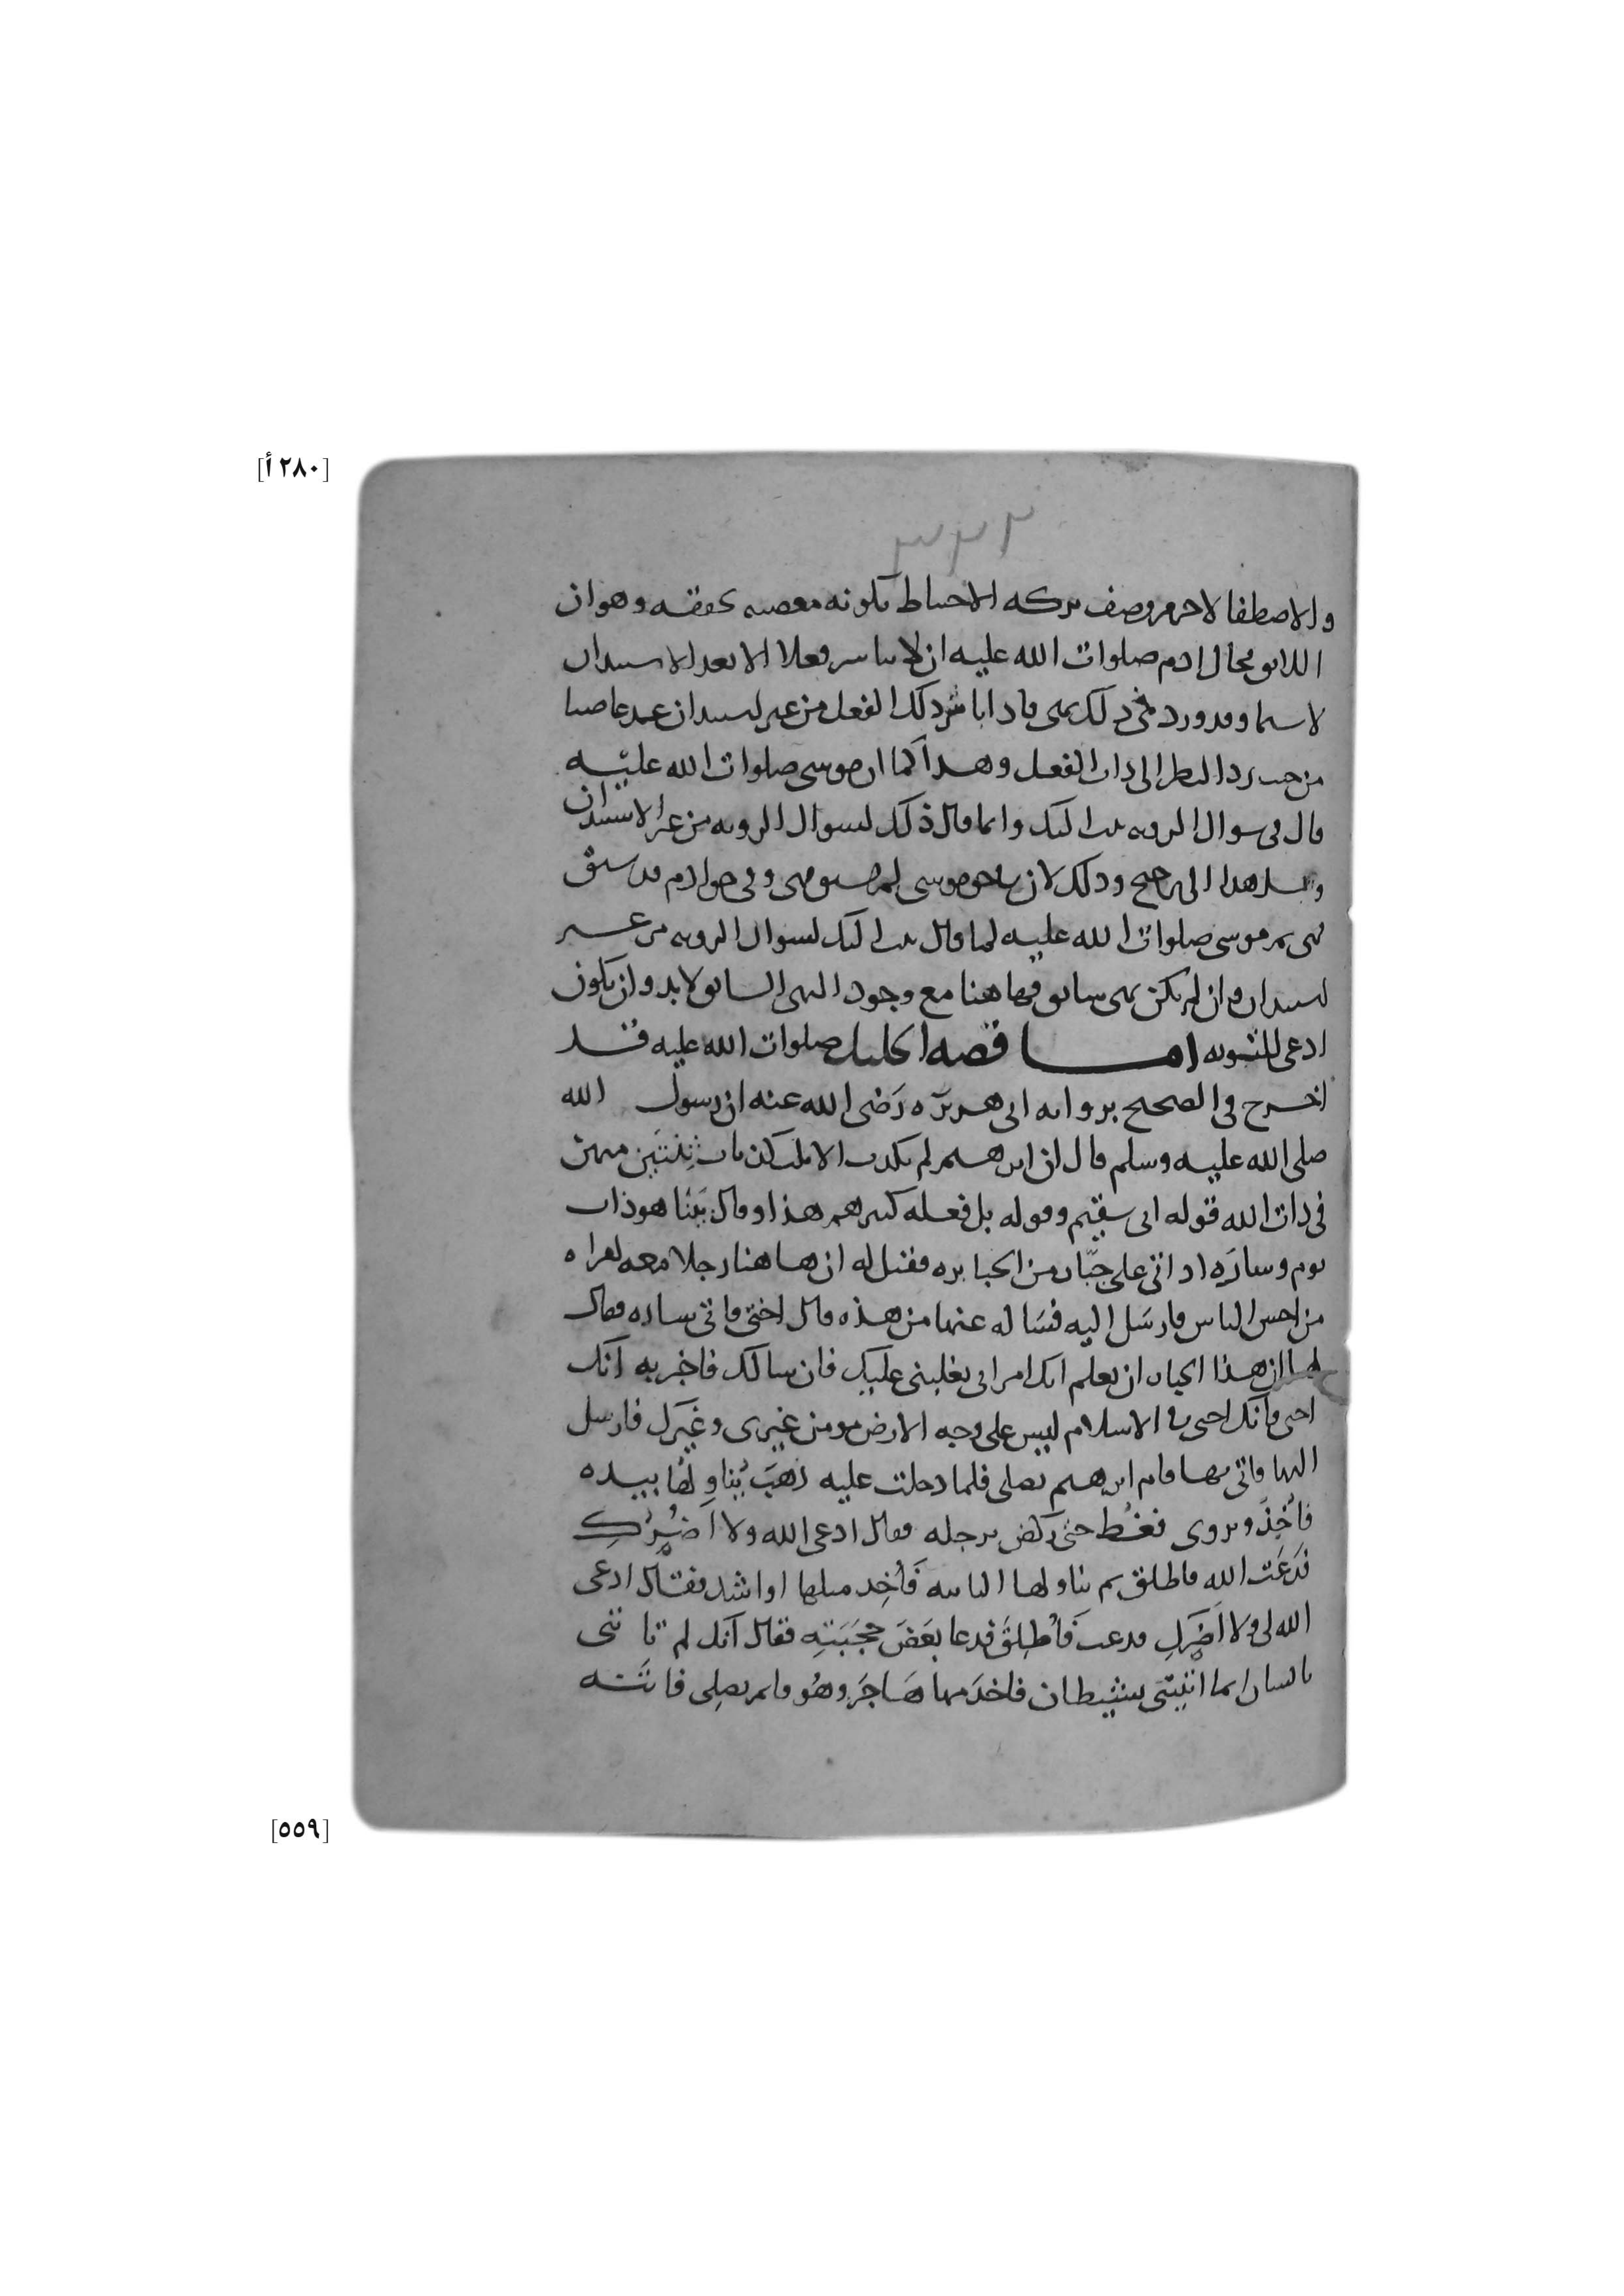 [٢٨٠ أ]
والاصطفا لاجرم وصف تركه الاحتياط بكونه معصيه تحققه وهو ان
اللايق بحال ادم صلوات الله عليه ان لا يباشر فعلا الا بعد الاستيدان
لاسيما وقد ورد في ذلك نهي فاذا باشر ذلك الفعل من غير استيدان عد عاصيا
من حيث النظر الى ذات الفعل وهذا كما ان موسى صلوات الله عليه
قال في سوال الرويه تبت اليك وانما قال ذلك لسوال الرويه من غير الاستيدان
هذا الى ترجيح وذلك لان في حق موسى لم يسبق نهي وفي حق ادم قد سبق
نهي ثم موسى صلوات الله عليه لما قال تبت اليك لسوال الرويه من غير
استيدان وان لم يكن نهي سابق فهاهنا مع وجود النهي السابق لابد وان يكون
ادعى للتوبه اما قصه الخليل صلوات الله عليه فقد
اخرج في الصحيح بروايه ابي هريره رضى الله عنه ان رسول الله
صلى الله عليه وسلم قال ان ابرهيم لم يكذب الا ثلث كذبات ثنتين منهن
في ذات الله قوله اني سقيم وقوله بل فعله كبيرهم هذا وقال بينا هو ذات
يوم وساره اذ اتى على جبار من الجبابره فقيل له ان هاهنا رجلا معه امراه
من احسن الناس فارسل اليه فساله عنها من هذه قال اختي فاتى ساره فقال
لها ان هذا الجبار ان يعلم انك امراتي يغلبني عليك فان سالك فاخبريه انك
اختي فانك اختي في الاسلام ليس على وجه الارض مومن غيرى وغيرك فارسل
اليها فاتى بها قام ابرهيم يصلى فلما دخلت عليه ذهب يتناولها بيده
فاخذ ويروى فغط حتى ركض برجله فقال ادعى الله ولا اضرك
فدعت الله فاطلق ثم تناولها الثانيه فاخذ مثلها او اشد فقال ادعى
الله لى ولا اضرك فدعت فاطلق فدعا بعض حجبته فقال انك لم تاتنى
بانسان انما اتيتنى بشيطان فاخدمها هاجر وهو قايم يصلى فاتته
[٥٥٩]